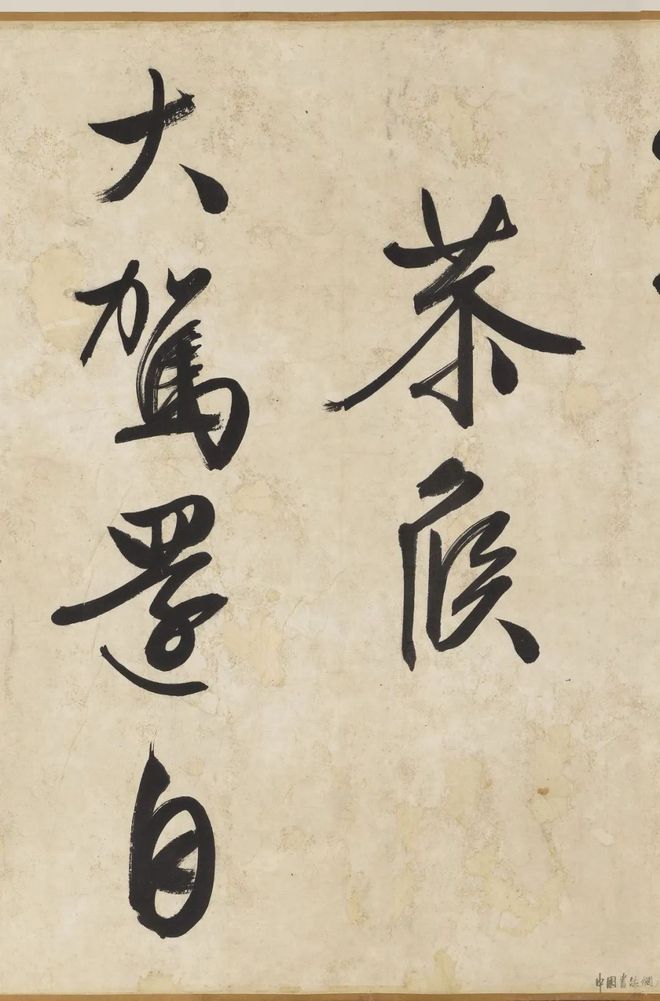 恭候
大駕還自
中國書法網